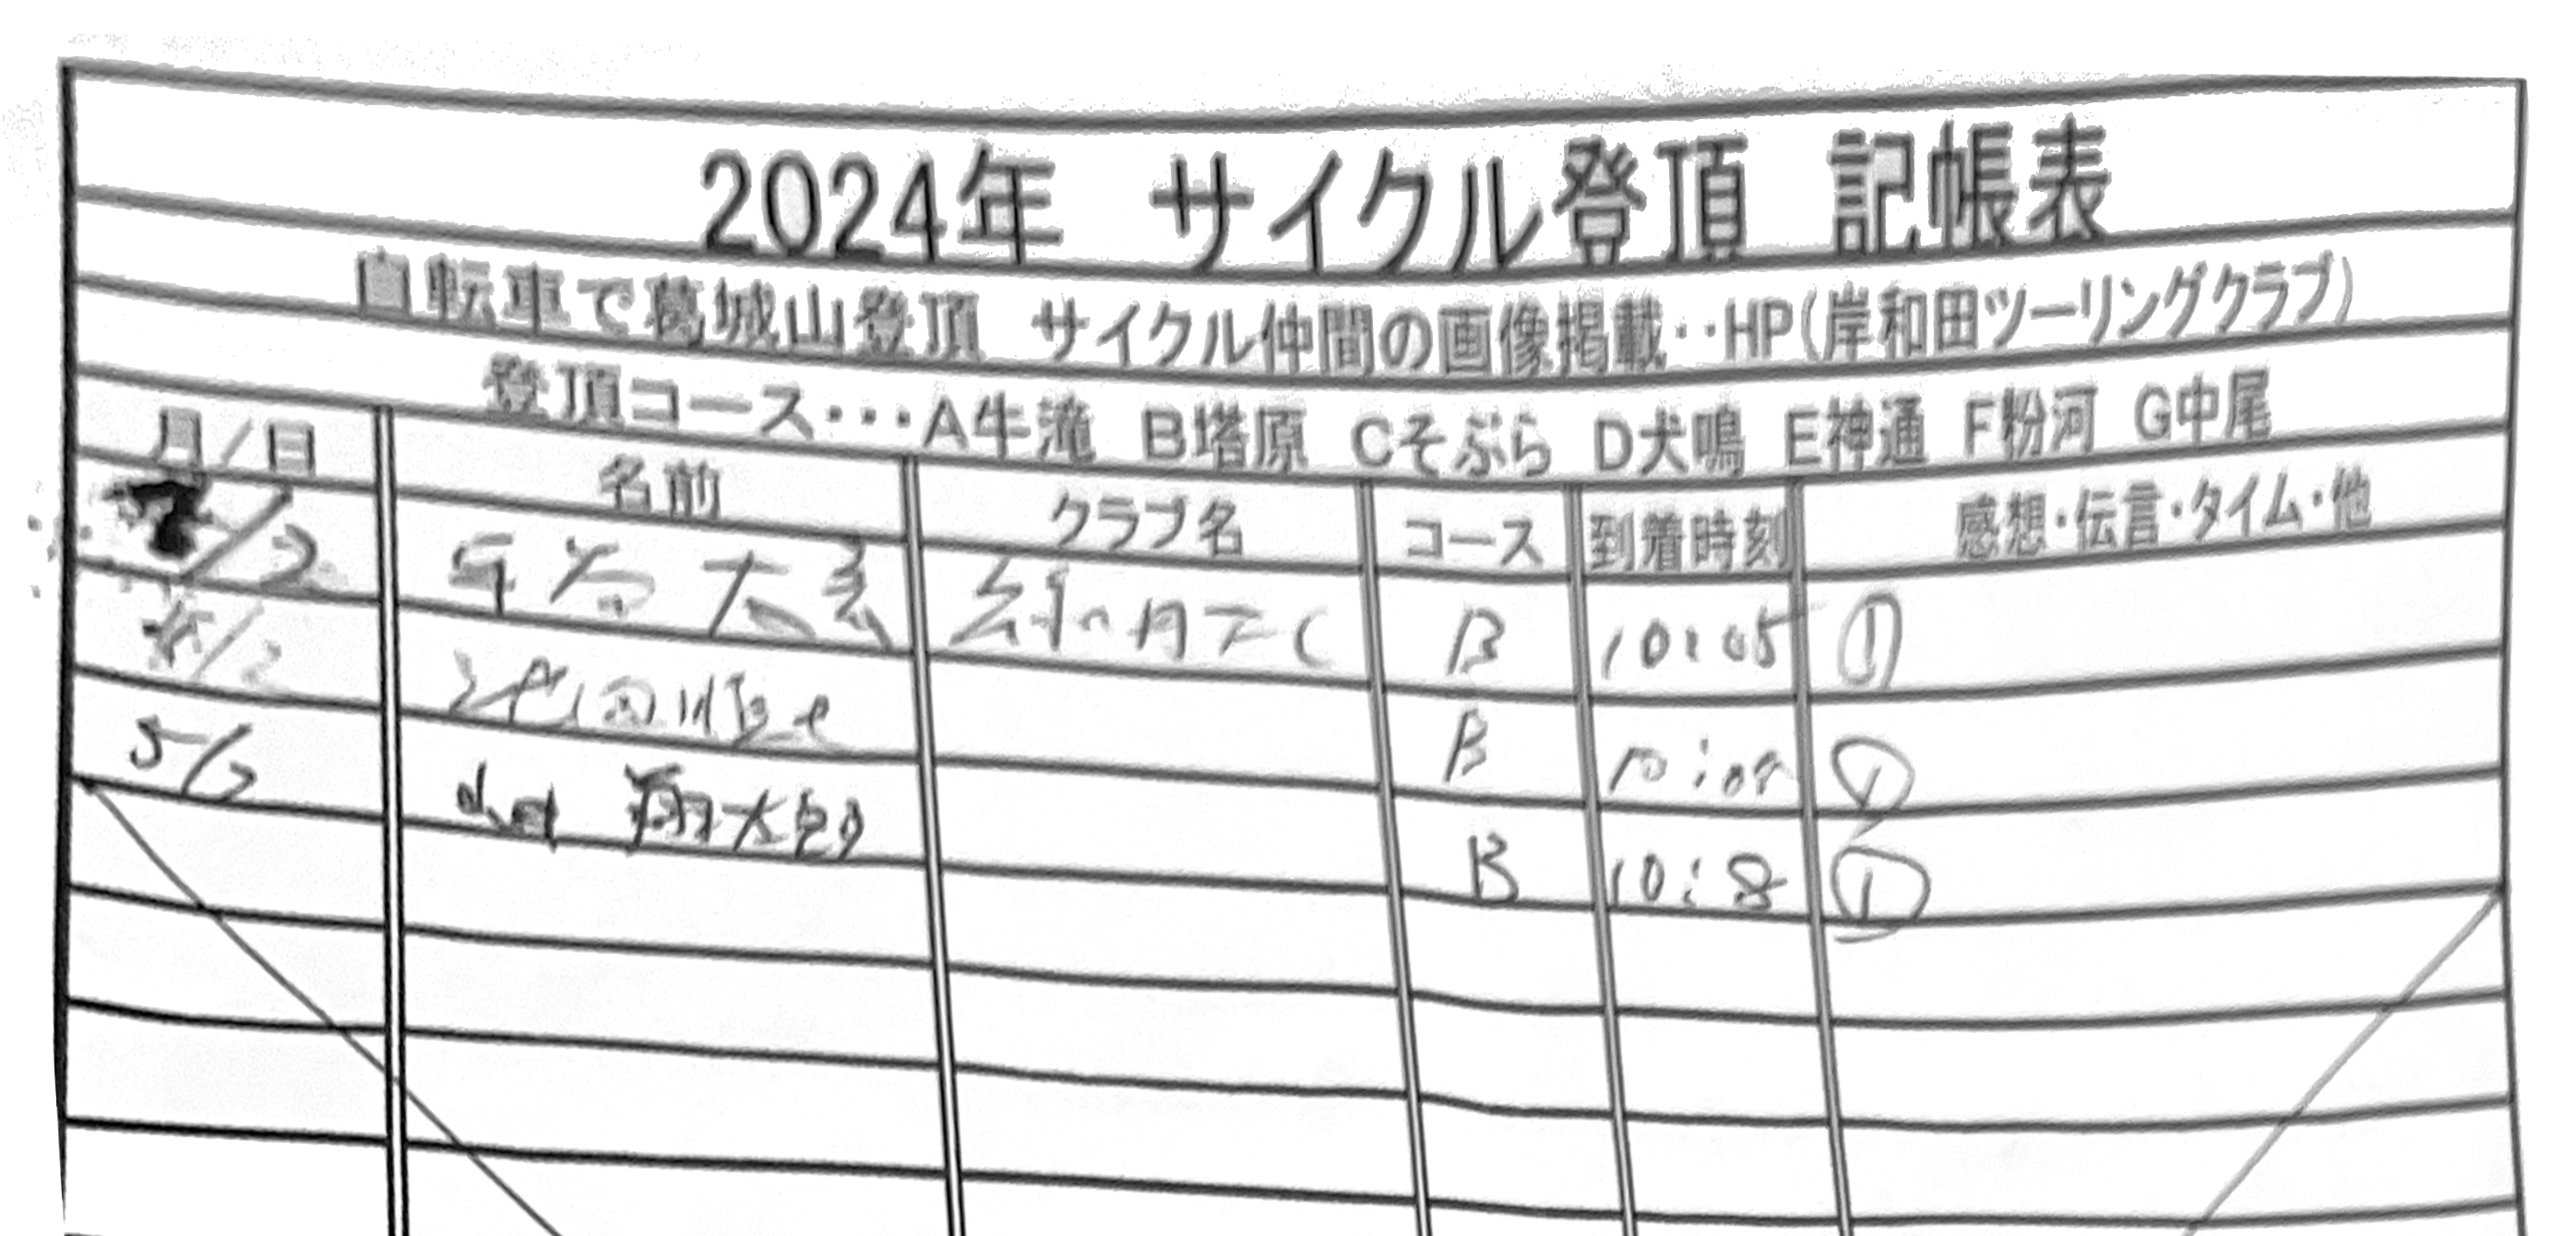 2024年 サイクル登頂 記帳表
自転車で葛城山登頂 サイクル仲間の画像掲載‥HP(岸和田ツーリングクラブ)
登頂コース・・・A牛滝 B塔原 Cそぶら D犬鳴 E神通 F粉河 G中尾
月/日 名前 クラブ名 コース 到着時刻 感想・伝言・タイム・他
/2 B 10:05 ①
/2 B ①
5/2 翔太郎 B 10:8 ①